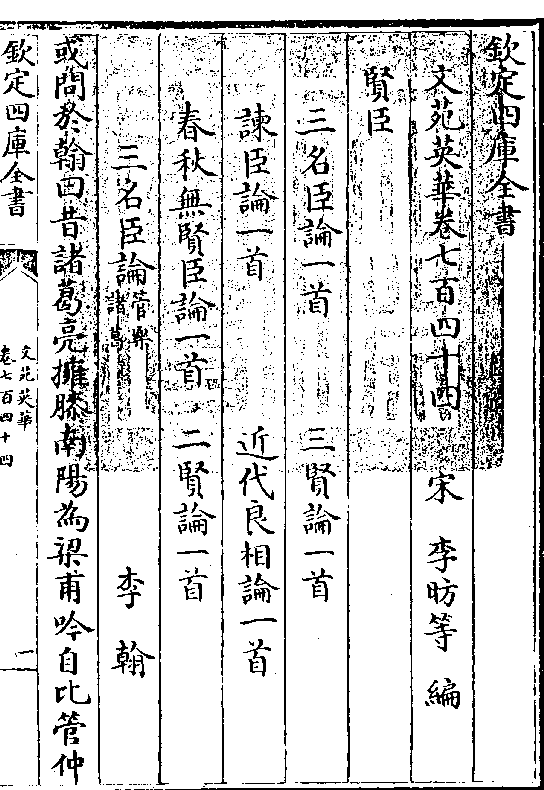 欽定四庫全書
文苑英華卷七百四十四 宋 李昉等 編
賢臣
三名臣論一首 三賢論一首
諫臣論一首 近代良相論一首
春秋無賢臣論一首 二賢論一首
三名臣論管樂諸葛 李翰
或問於翰曰昔諸葛亮擁膝南陽為梁甫吟自比管仲
欽定四庫全書
文苑英華
卷七百四十四
一